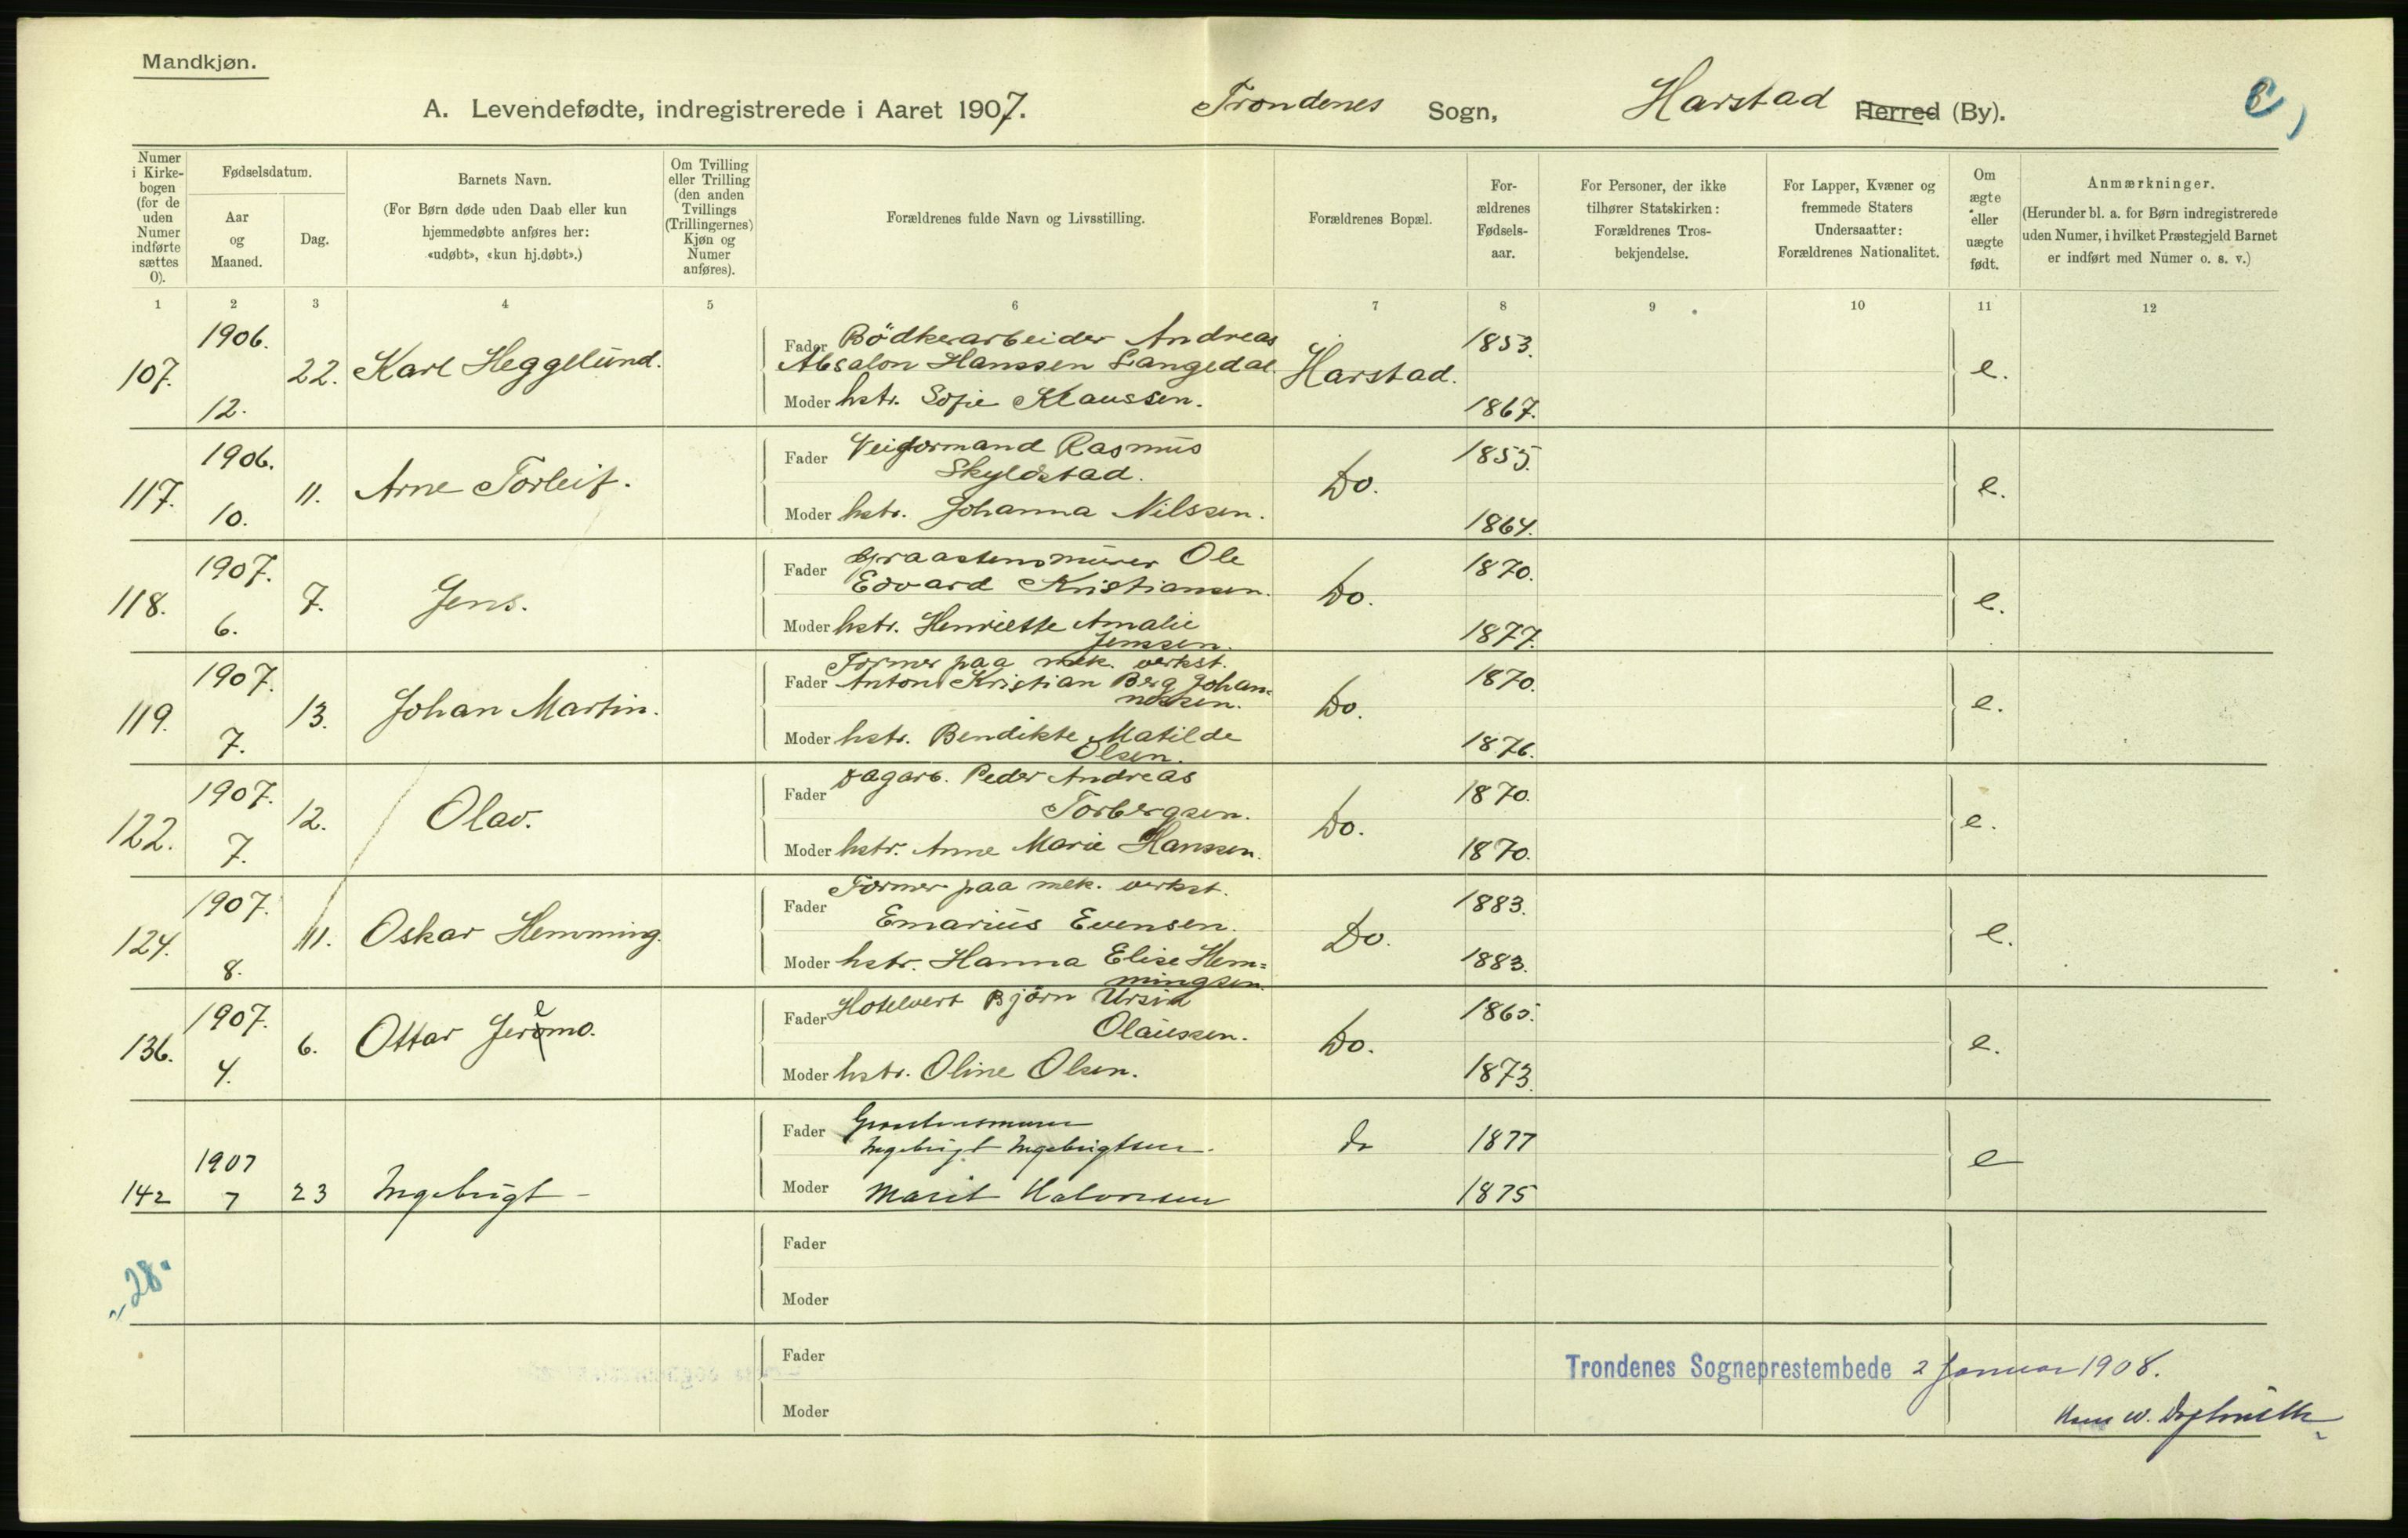 Mandkjøn.
A. Levendefødte, indregistrerede i Aaret 1907. Trondenes Sogn, Harstad Herred (By).
Numer i Kirkebogen (for de uden Numer indførte sættes 0).
Fødselsdatum.
Aar og Maaned.
Dag.
Barnets Navn.
(For Børn døde uden Daab eller kun hjemmedøbte anføres her: «udøbt», «kun hj.døbt».)
Om Tvilling eller Trilling (den anden Tvillings (Trillingernes) Kjøn og Numer anføres).
Forældrenes fulde Navn og Livsstilling.
Forældrenes Bopæl.
Forældrenes Fødselsaar.
For Personer, der ikke tilhører Statskirken: Forældrenes Trosbekjendelse.
For Lapper, Kvæner og fremmede Staters Undersaatter: Forældrenes Nationalitet.
Om ægte eller uægte født.
Anmærkninger.
(Herunder bl. a. for Børn indregistrerede uden Numer, i hvilket Præstegjeld Barnet er indført med Numer o. s. v.)
1 2 3 4 5 6 7 8 9 10 11 12
107. 1906. 12. 22. Karl Heggelund.
Fader Bödkerarbeider Andreas
Absalon Hanssen Langedal.
Harstad. 1853. e.
Moder hstr. Sofie Klaussen. 1867.
117. 1906. 10. 11. Arne Torleif.
Fader Veiformand Rasmus
Skyldstad.
Do. 1855. e.
Moder hstr. Johanna Nilssen. 1864.
118. 1907. 6. 7. Jens.
Fader Graastensmurer Ole
Edvard Kristiansen.
Do. 1870. e.
Moder hstr. Henriette Amalie
Jenssen. 1877.
119. 1907. 7. 13. Johan Martin.
Former paa mek. verkst.
Fader Anton Kristian Berg Johan=
nessen.
Do. 1870. e.
Moder hstr. Bendikte Matilde
Olsen. 1876.
122. 1907. 7. 12. Olav.
Fader Dagarb. Peder Andreas
Torbergsen.
Do. 1870. e.
Moder hstr. Anne Marie Hanssen. 1870.
124. 1907. 8. 11. Oskar Hemming.
Former paa mek. verkst.
Fader Emarius Evensen.
Do. 1883. e.
Moder hstr. Hanna Elise Hem=
mingsen. 1883.
136. 1907. 4. 6. Ottar Jeremo.
Fader Hotelvert Björn Ursin
Olaussen.
Do. 1865. e.
Moder hstr. Oline Olsen. 1873.
142 1907 7 23 Ingebrigt
Fader Graastensmurer
Ingebrigt Ingebrigtsen.
do 1877 e
Moder Marit Halvorsen 1875
Fader
„28"
Moder
Fader
Trondenes Sogneprestembede 2 Januar 1908.
Moder